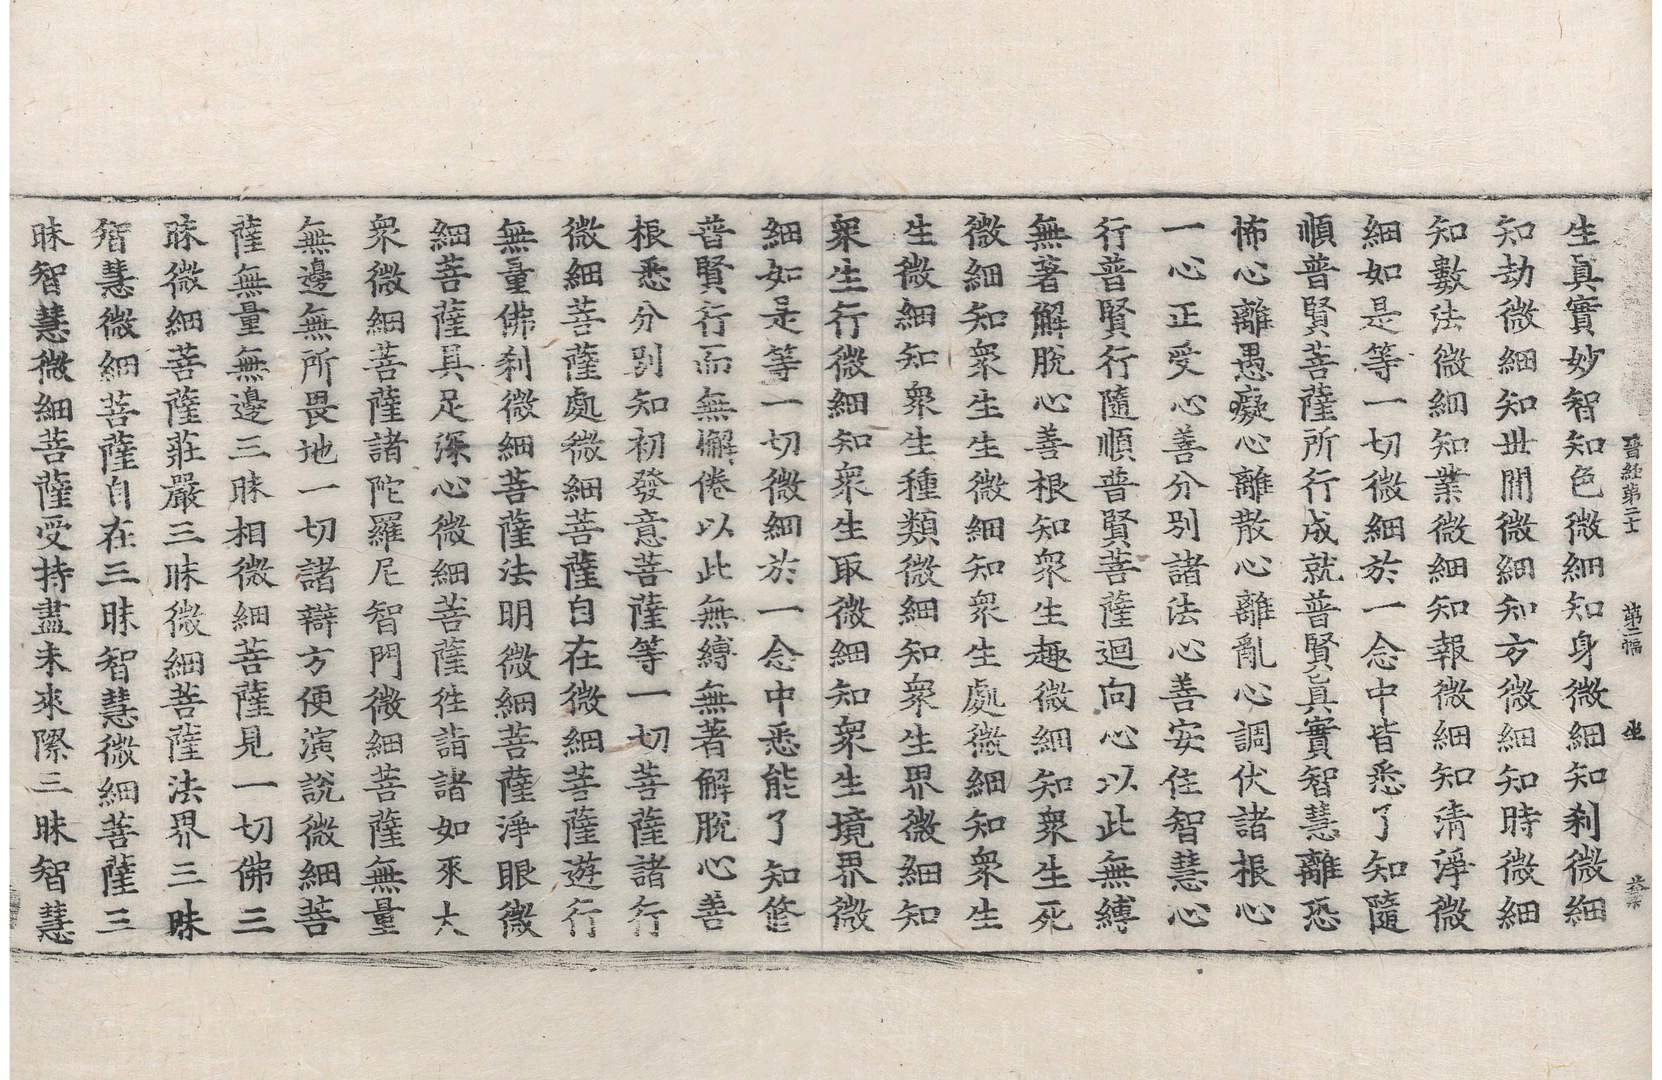 晉經第二十 第二幅 坐
生真實妙智知色微細知身微細知刹微細
知劫微細知世間微細知方微細知時微細
知數法微細知業微細知報微細知清淨微
細如是等一切微細於一念中皆悉了知隨
順普賢菩薩所行成就普賢真實智慧離恐
怖心離愚癡心離散心離亂心調伏諸根心
一心正受心善分別諸法心善安住智慧心
行普賢行隨順普賢菩薩迴向心以此無縛
無著解脫心善根知眾生趣微細知眾生死
微細知眾生生微細知眾生處微細知眾生
生微細知眾生種類微細知眾生界微細知
眾生行微細知眾生取微細知眾生境界微
細如是等一切微細於一念中悉能了知修
普賢行而無懈倦以此無縛無著解脫心善
根悉分別知初發意菩薩等一切菩薩諸行
微細菩薩處微細菩薩自在微細菩薩遊行
無量佛刹微細菩薩法明微細菩薩淨眼微
細菩薩具足深心微細菩薩往詣諸如來大
眾微細菩薩諸陀羅尼智門微細菩薩無量
無邊無所畏地一切諸辯方便演說微細菩
薩無量無邊三昧相微細菩薩見一切佛三
昧微細菩薩莊嚴三昧微細菩薩法界三昧
智慧微細菩薩自在三昧智慧微細菩薩三
昧智慧微細菩薩受持盡未來際三昧智慧